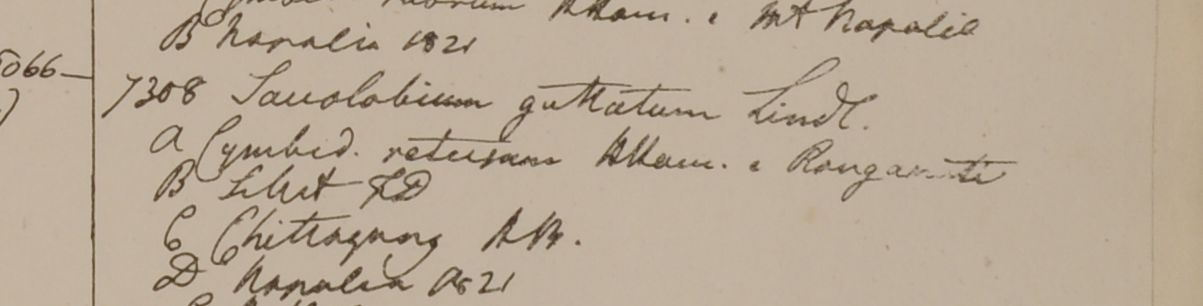 Cymbid. HHam. e Mt Napalia
B Napalia 1821
5066
7308 Saccolobium guttatum Lindl.
A Cymbid. retusum HHam. e Rangamati
B Silhet FD
C Chittagong HB.
D Napalia 1821